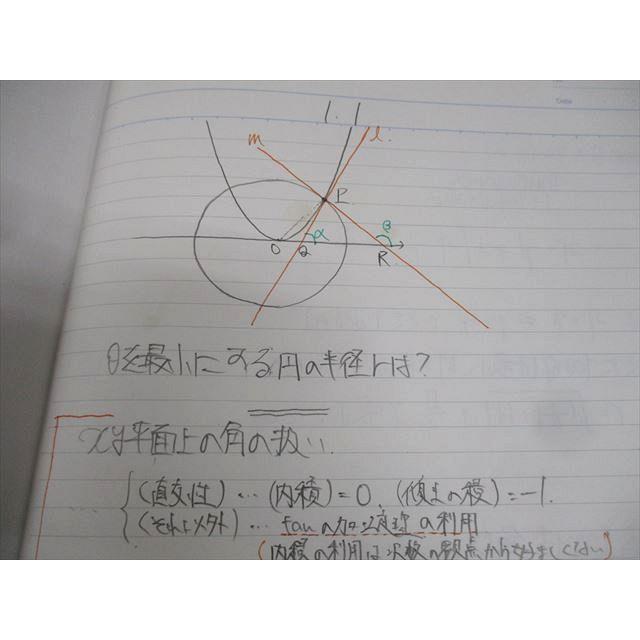 m
l.
P
α
β
O
Q
R
θを最小にする円の半径rは?
xy平面上の角の扱い.
(直交性)…(内積)=0, (傾きの積)=-1.
(それ以外)… tanの加法定理の利用
(内積の利用は次数の観点から好ましくない)